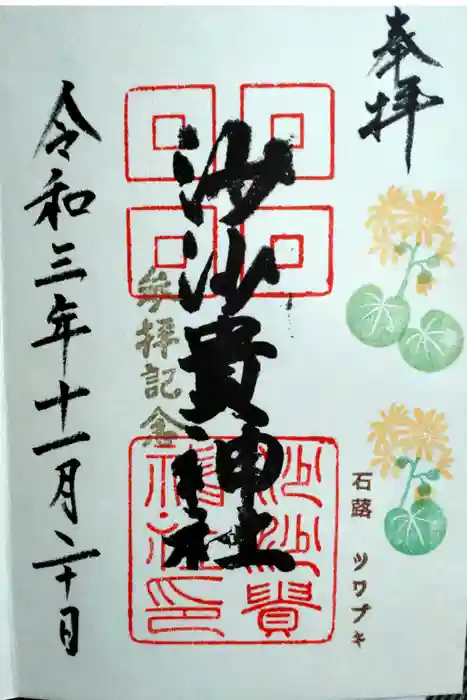 奉拝
石蕗 ツワブキ
沙沙貴神社
参拝記念
沙沙貴神社印
令和三年十一月二十日